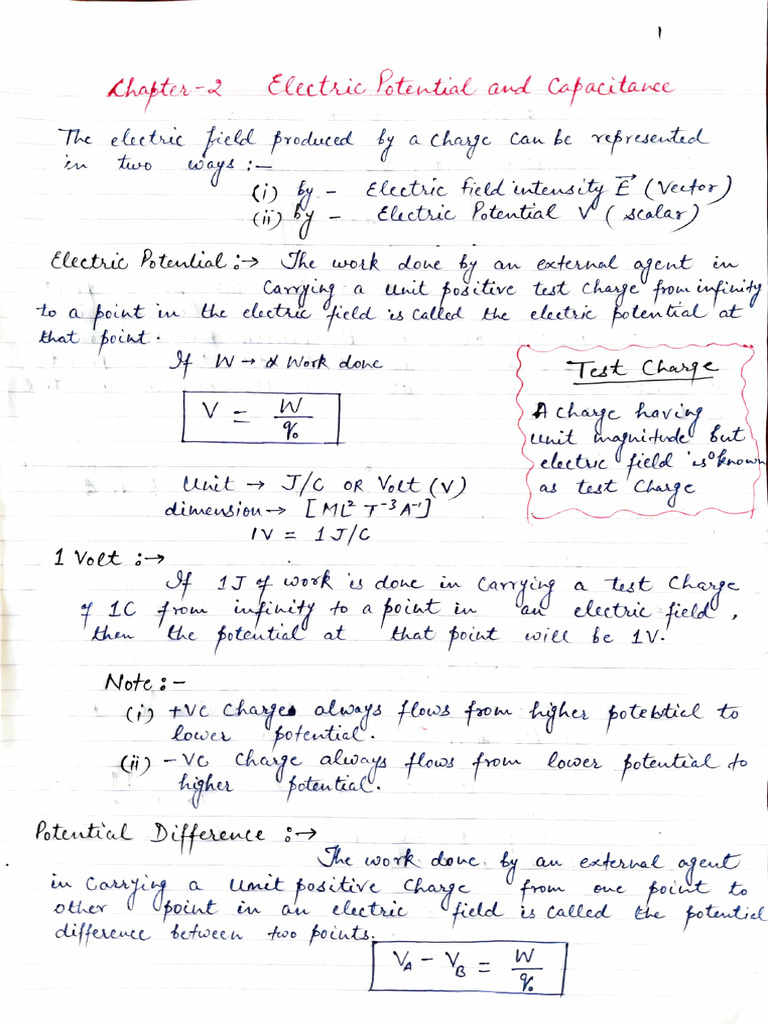 1
Chapter-2 Electric Potential and Capacitance
The electric field produced by a charge can be represented
in two ways :-
(i) by - Electric field intensity E⃗ (Vector)
(ii) by - Electric Potential V (scalar)
Electric Potential :→ The work done by an external agent in
carrying a unit positive test charge from infinity
to a point in the electric field is called the electric potential at
that point.
If W → Work done
V = W/q₀
Unit → J/C OR Volt (V)
dimension → [ML² T⁻³ A⁻¹]
1V = 1 J/C
Test Charge
A charge having
unit magnitude but
electric field is 0 known
as test charge
1 Volt :→
If 1J of work is done in carrying a test charge
of 1C from infinity to a point in an electric field,
then the potential at that point will be 1V.
Note :-
(i) +ve charge always flows from higher potential to
lower potential.
(ii) -ve charge always flows from lower potential to
higher potential.
Potential Difference :→
The work done by an external agent
in carrying a unit positive charge from one point to
other point in an electric field is called the potential
difference between two points.
V_A - V_B = W/q₀